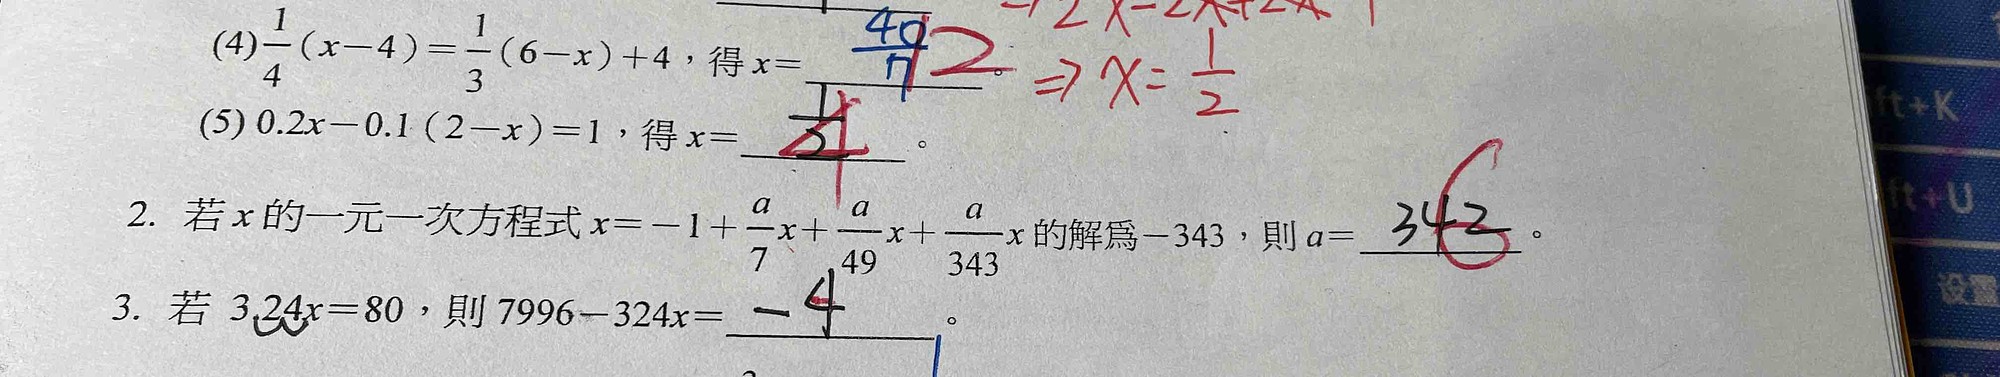 ⇒2x-2x+2x
(4) 1/4 (x-4)=1/3 (6-x)+4,得 x= 40/7 12 。
⇒x=1/2
(5) 0.2x-0.1 (2-x)=1,得 x= 4 。
2. 若 x 的一元一次方程式 x=-1+a/7 x+a/49 x+a/343 x 的解爲-343,則 a= 342 6 。
3. 若 3.24x=80,則 7996-324x= -4 。
ft+K
ft+U
设置